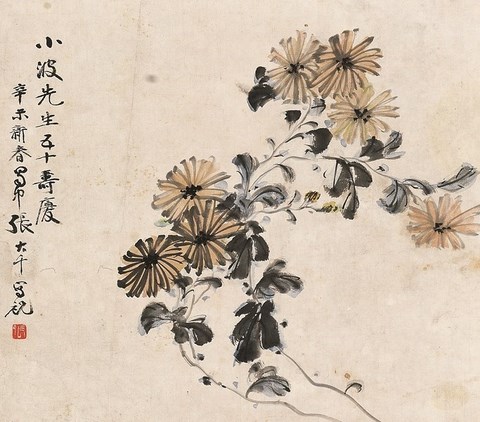 小波先生五十壽慶
辛未新春蜀郡張大千寫祝